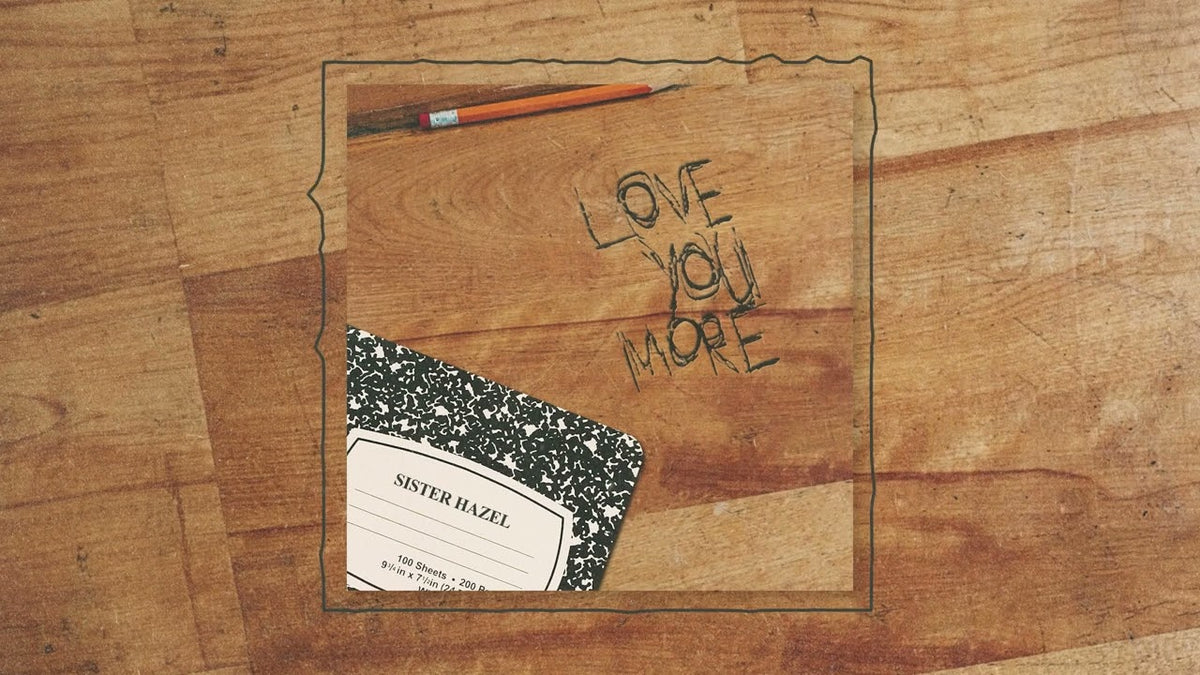 LOVE
YOU
MORE
SISTER HAZEL
100 Sheets • 200
9¾in x 7½in